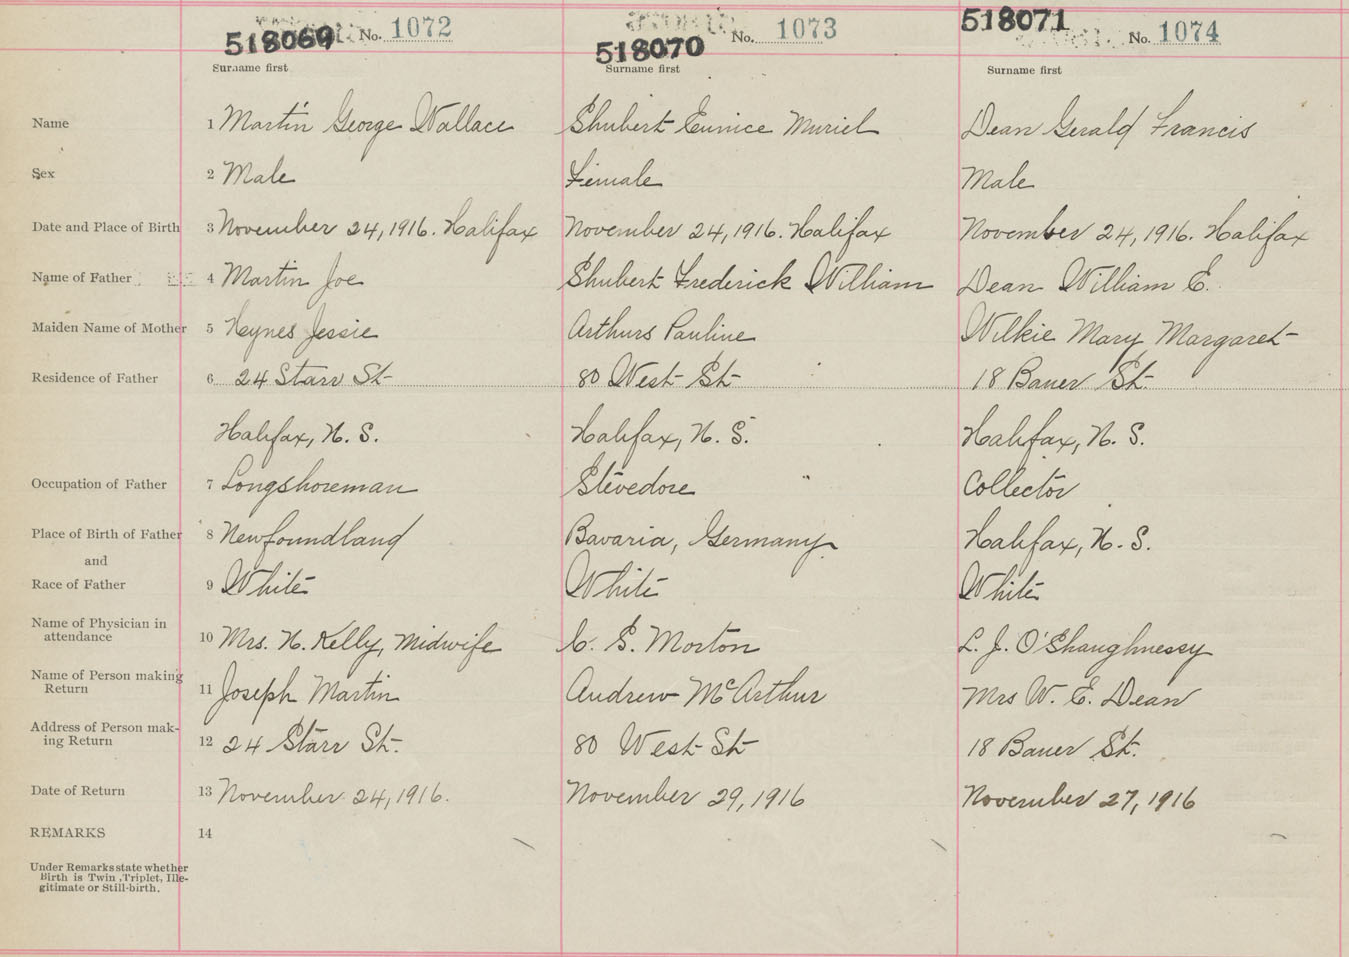 518069 No. 1072 518070 No. 1073 518071 No. 1074
Surname first Surname first Surname first
Name 1 Martin George Wallace Shubert Eunice Muriel Dean Gerald Francis
Sex 2 Male Female Male
Date and Place of Birth 3 November 24, 1916. Halifax November 24, 1916. Halifax November 24, 1916. Halifax
Name of Father 4 Martin Joe Shubert Frederick William Dean William E.
Maiden Name of Mother 5 Heynes Jessie Arthurs Pauline Wilkie Mary Margaret
Residence of Father 6 24 Starr St 80 West St 18 Bauer St.
Halifax, N. S. Halifax, N. S. Halifax, N. S.
Occupation of Father 7 Longshoreman Stevedore Collector
Place of Birth of Father 8 Newfoundland Bavaria, Germany Halifax, N. S.
and
Race of Father 9 White White White
Name of Physician in
attendance 10 Mrs. N. Kelly, Midwife C. S. Morton L. J. O'Shaughnessy
Name of Person making
Return 11 Joseph Martin Andrew McArthur Mrs W. E. Dean
Address of Person mak-
ing Return 12 24 Starr St. 80 West St 18 Bauer St.
Date of Return 13 November 24, 1916. November 29, 1916 November 27, 1916
REMARKS 14
Under Remarks state whether
Birth is Twin, Triplet, Ille-
gitimate or Still-birth.